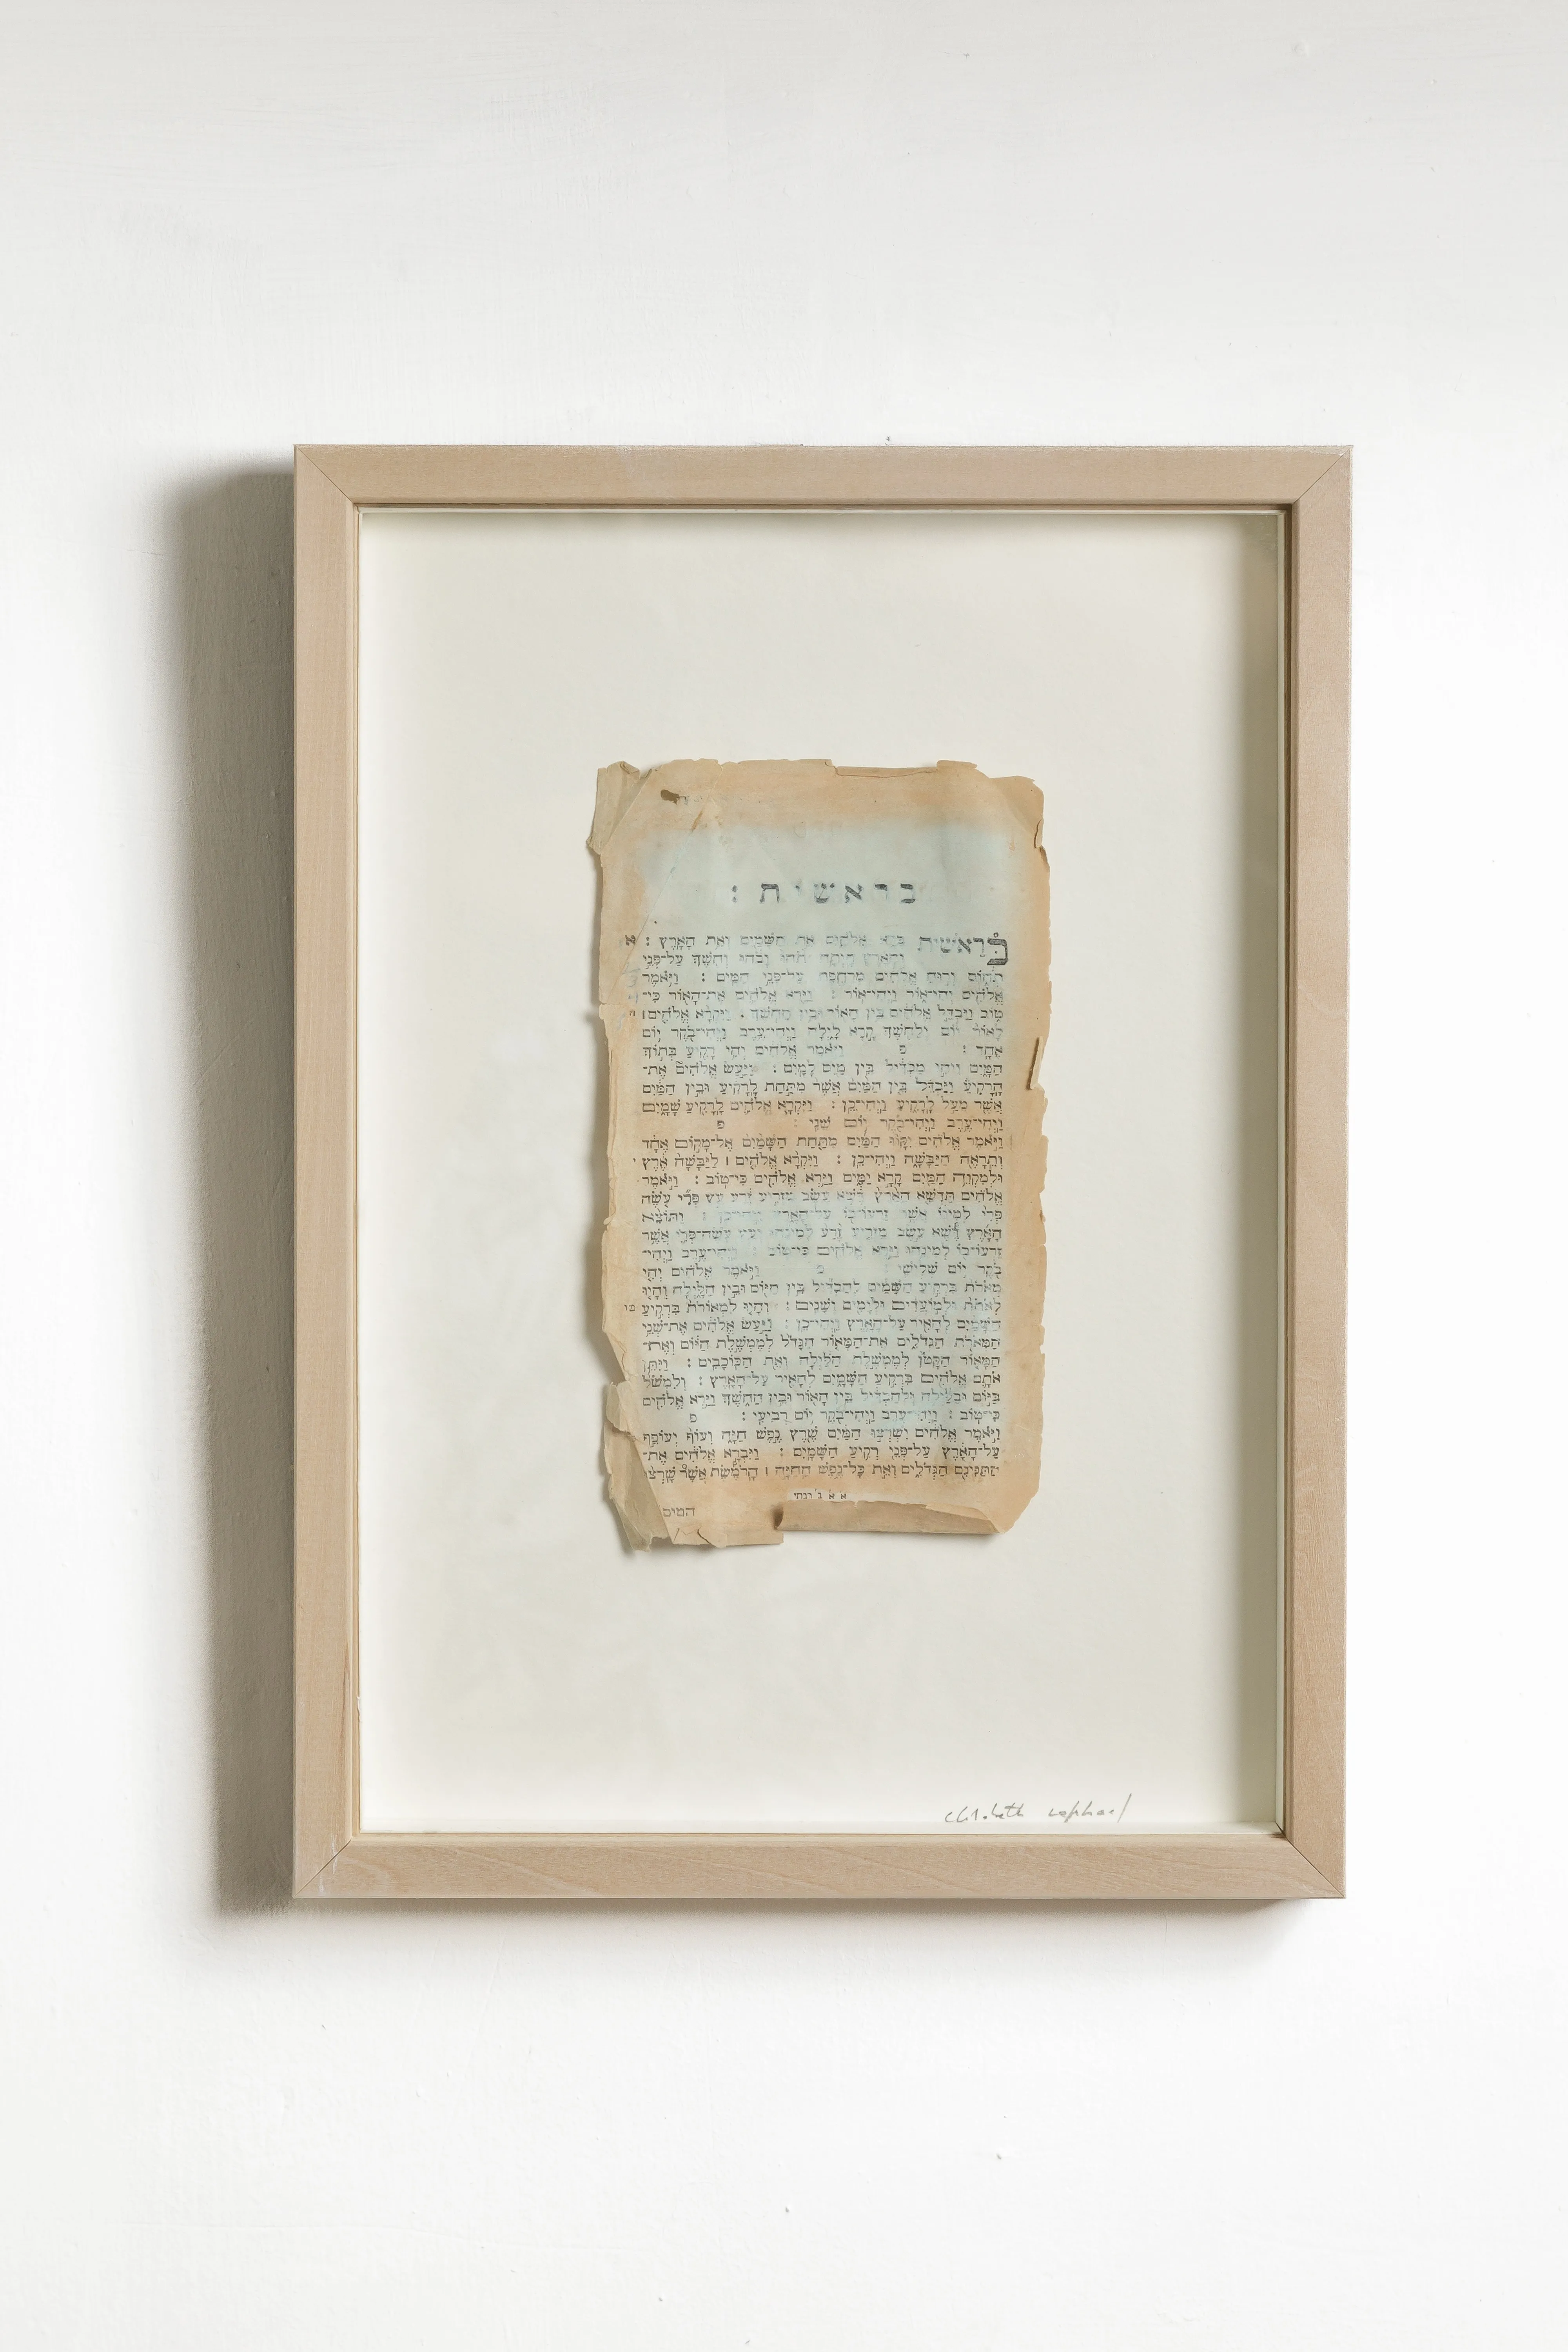 בראשית :
בְּרֵאשִׁית בָּרָא אֱלֹהִים אֵת הַשָּׁמַיִם וְאֵת הָאָרֶץ : א
וְהָאָרֶץ הָיְתָה תֹהוּ וָבֹהוּ וְחֹשֶׁךְ עַל־פְּנֵי
תְהוֹם וְרוּחַ אֱלֹהִים מְרַחֶפֶת עַל־פְּנֵי הַמָּיִם : וַיֹּאמֶר
אֱלֹהִים יְהִי־אוֹר וַיְהִי־אוֹר : וַיַּרְא אֱלֹהִים אֶת־הָאוֹר כִּי־
טוֹב וַיַּבְדֵּל אֱלֹהִים בֵּין הָאוֹר וּבֵין הַחֹשֶׁךְ : וַיִּקְרָא אֱלֹהִים ׀ ה
לָאוֹר יוֹם וְלַחֹשֶׁךְ קָרָא לָיְלָה וַיְהִי־עֶרֶב וַיְהִי־בֹקֶר יוֹם
אֶחָד : פ וַיֹּאמֶר אֱלֹהִים יְהִי רָקִיעַ בְּתוֹךְ
הַמָּיִם וִיהִי מַבְדִּיל בֵּין מַיִם לָמָיִם : וַיַּעַשׂ אֱלֹהִים אֶת־
הָרָקִיעַ וַיַּבְדֵּל בֵּין הַמַּיִם אֲשֶׁר מִתַּחַת לָרָקִיעַ וּבֵין הַמַּיִם
אֲשֶׁר מֵעַל לָרָקִיעַ וַיְהִי־כֵן : וַיִּקְרָא אֱלֹהִים לָרָקִיעַ שָׁמָיִם
וַיְהִי־עֶרֶב וַיְהִי־בֹקֶר יוֹם שֵׁנִי : פ
וַיֹּאמֶר אֱלֹהִים יִקָּווּ הַמַּיִם מִתַּחַת הַשָּׁמַיִם אֶל־מָקוֹם אֶחָד
וְתֵרָאֶה הַיַּבָּשָׁה וַיְהִי־כֵן : וַיִּקְרָא אֱלֹהִים ׀ לַיַּבָּשָׁה אֶרֶץ י
וּלְמִקְוֵה הַמַּיִם קָרָא יַמִּים וַיַּרְא אֱלֹהִים כִּי־טוֹב : וַיֹּאמֶר
אֱלֹהִים תַּדְשֵׁא הָאָרֶץ דֶּשֶׁא עֵשֶׂב מַזְרִיעַ זֶרַע עֵץ פְּרִי עֹשֶׂה
פְּרִי לְמִינוֹ אֲשֶׁר זַרְעוֹ־בוֹ עַל־הָאָרֶץ וַיְהִי־כֵן : וַתּוֹצֵא
הָאָרֶץ דֶּשֶׁא עֵשֶׂב מַזְרִיעַ זֶרַע לְמִינֵהוּ וְעֵץ עֹשֶׂה־פְּרִי אֲשֶׁר
זַרְעוֹ־בוֹ לְמִינֵהוּ וַיַּרְא אֱלֹהִים כִּי־טוֹב : וַיְהִי־עֶרֶב וַיְהִי־
בֹקֶר יוֹם שְׁלִישִׁי : פ וַיֹּאמֶר אֱלֹהִים יְהִי
מְאֹרֹת בִּרְקִיעַ הַשָּׁמַיִם לְהַבְדִּיל בֵּין הַיּוֹם וּבֵין הַלָּיְלָה וְהָיוּ
לְאֹתֹת וּלְמוֹעֲדִים וּלְיָמִים וְשָׁנִים : וְהָיוּ לִמְאוֹרֹת בִּרְקִיעַ טו
הַשָּׁמַיִם לְהָאִיר עַל־הָאָרֶץ וַיְהִי־כֵן : וַיַּעַשׂ אֱלֹהִים אֶת־שְׁנֵי
הַמְּאֹרֹת הַגְּדֹלִים אֶת־הַמָּאוֹר הַגָּדֹל לְמֶמְשֶׁלֶת הַיּוֹם וְאֶת־
הַמָּאוֹר הַקָּטֹן לְמֶמְשֶׁלֶת הַלַּיְלָה וְאֵת הַכּוֹכָבִים : וַיִּתֵּן
אֹתָם אֱלֹהִים בִּרְקִיעַ הַשָּׁמָיִם לְהָאִיר עַל־הָאָרֶץ : וְלִמְשֹׁל
בַּיּוֹם וּבַלַּיְלָה וּלְהַבְדִּיל בֵּין הָאוֹר וּבֵין הַחֹשֶׁךְ וַיַּרְא אֱלֹהִים
כִּי־טוֹב : וַיְהִי־עֶרֶב וַיְהִי־בֹקֶר יוֹם רְבִיעִי : פ
וַיֹּאמֶר אֱלֹהִים יִשְׁרְצוּ הַמַּיִם שֶׁרֶץ נֶפֶשׁ חַיָּה וְעוֹף יְעוֹפֵף
עַל־הָאָרֶץ עַל־פְּנֵי רְקִיעַ הַשָּׁמָיִם : וַיִּבְרָא אֱלֹהִים אֶת־
הַתַּנִּינִם הַגְּדֹלִים וְאֵת כָּל־נֶפֶשׁ הַחַיָּה ׀ הָרֹמֶשֶׂת אֲשֶׁר שָׁרְצוּ
המים
elisabeth raphael